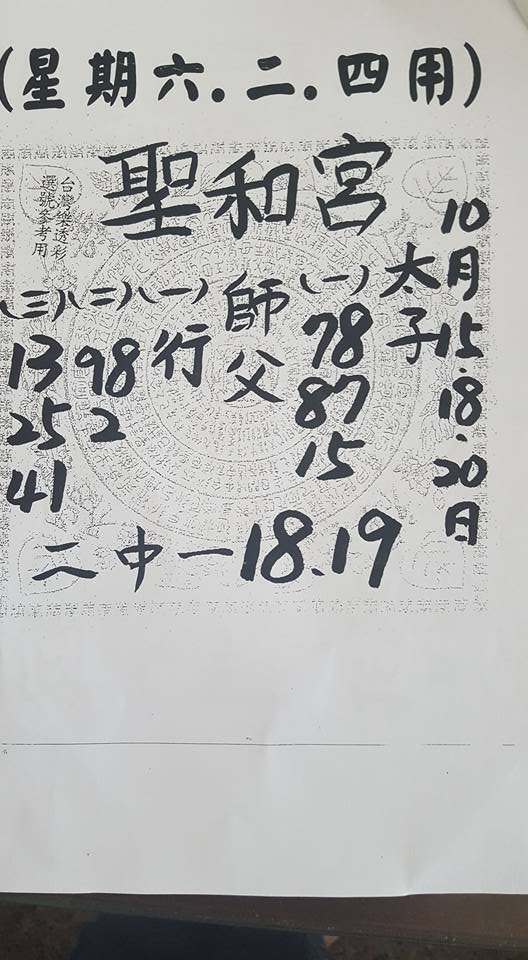 (星期六.二.四用)
聖和宮
台灣樂透彩
選號參考用
10月15.18.20日
太子
(一)
78
87
15
師父
(一)行
(二)
98
2
(三)
13
25
41
二中一18、19